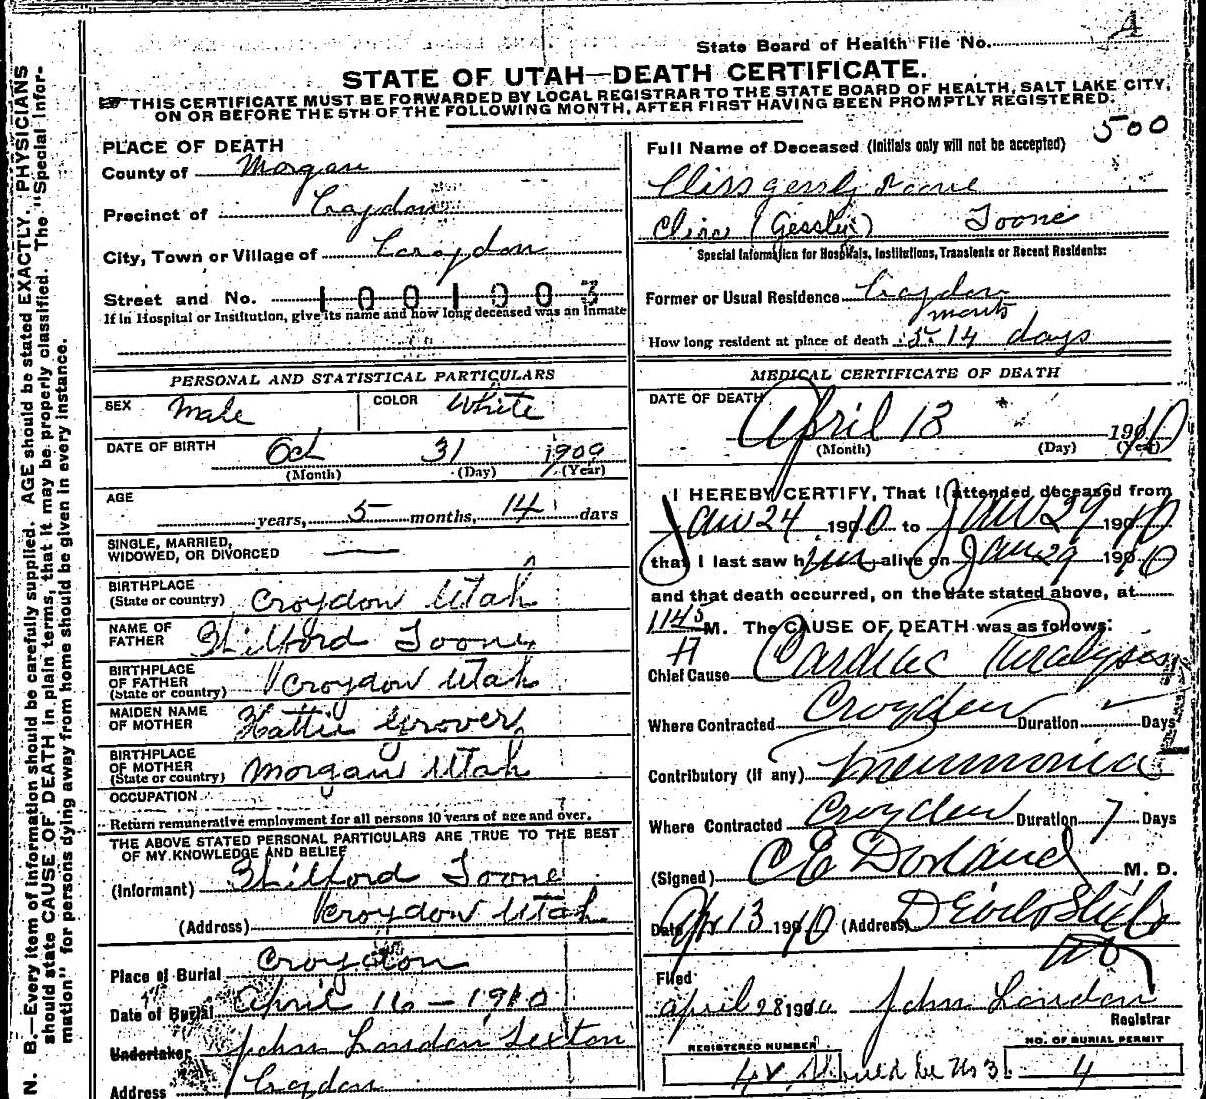 State Board of Health File No.
STATE OF UTAH—DEATH CERTIFICATE.
THIS CERTIFICATE MUST BE FORWARDED BY LOCAL REGISTRAR TO THE STATE BOARD OF HEALTH, SALT LAKE CITY,
ON OR BEFORE THE 5TH OF THE FOLLOWING MONTH, AFTER FIRST HAVING BEEN PROMPTLY REGISTERED.
500
N. B.—Every item of information should be carefully supplied. AGE should be stated EXACTLY. PHYSICIANS
should state CAUSE OF DEATH in plain terms, that it may be properly classified. The "Special Infor-
mation" for persons dying away from home should be given in every instance.
PLACE OF DEATH
County of Morgan
Precinct of Croydon
City, Town or Village of Croydon
Street and No. 1001003
If in Hospital or Institution, give its name and how long deceased was an inmate
PERSONAL AND STATISTICAL PARTICULARS
SEX Male COLOR White
DATE OF BIRTH Oct 31 1909
(Month) (Day) (Year)
AGE
years, 5 months, 14 days
SINGLE, MARRIED,
WIDOWED, OR DIVORCED
BIRTHPLACE
(State or country) Croydon Utah
NAME OF
FATHER Toone
BIRTHPLACE
OF FATHER
(State or country) Croydon Utah
MAIDEN NAME
OF MOTHER Hattie Grover
BIRTHPLACE
OF MOTHER
(State or country) Morgan Utah
OCCUPATION
Return remunerative employment for all persons 10 years of age and over.
THE ABOVE STATED PERSONAL PARTICULARS ARE TRUE TO THE BEST
OF MY KNOWLEDGE AND BELIEF
(Informant) Toone
(Address) Croydon Utah
Place of Burial Croydon
Date of Burial April 16 – 1910
Undertaker John London Sexton
Address Croydon
Full Name of Deceased (Initials only will not be accepted)
Toone
Special Information for Hospitals, Institutions, Transients or Recent Residents:
Former or Usual Residence Croydon
months
How long resident at place of death 5. 14 days
MEDICAL CERTIFICATE OF DEATH
DATE OF DEATH
April 13 1910
(Month) (Day) (Year)
I HEREBY CERTIFY, That I attended deceased from
Jan 24 1910 to Jan 29 1910
that I last saw him alive on Jan 29 1910
and that death occurred, on the date stated above, at
1145 A M. The CAUSE OF DEATH was as follows:
Chief Cause Cardiac Paralysis
Where Contracted Croyden Duration Days
Contributory (if any) Pneumonia
Where Contracted Croyden Duration 7 Days
(Signed) C E Dorland M. D.
Date Apr 13 1910 (Address)
Filed
april 28 1910 John London
Registrar
REGISTERED NUMBER NO. OF BURIAL PERMIT
should be No 3 4